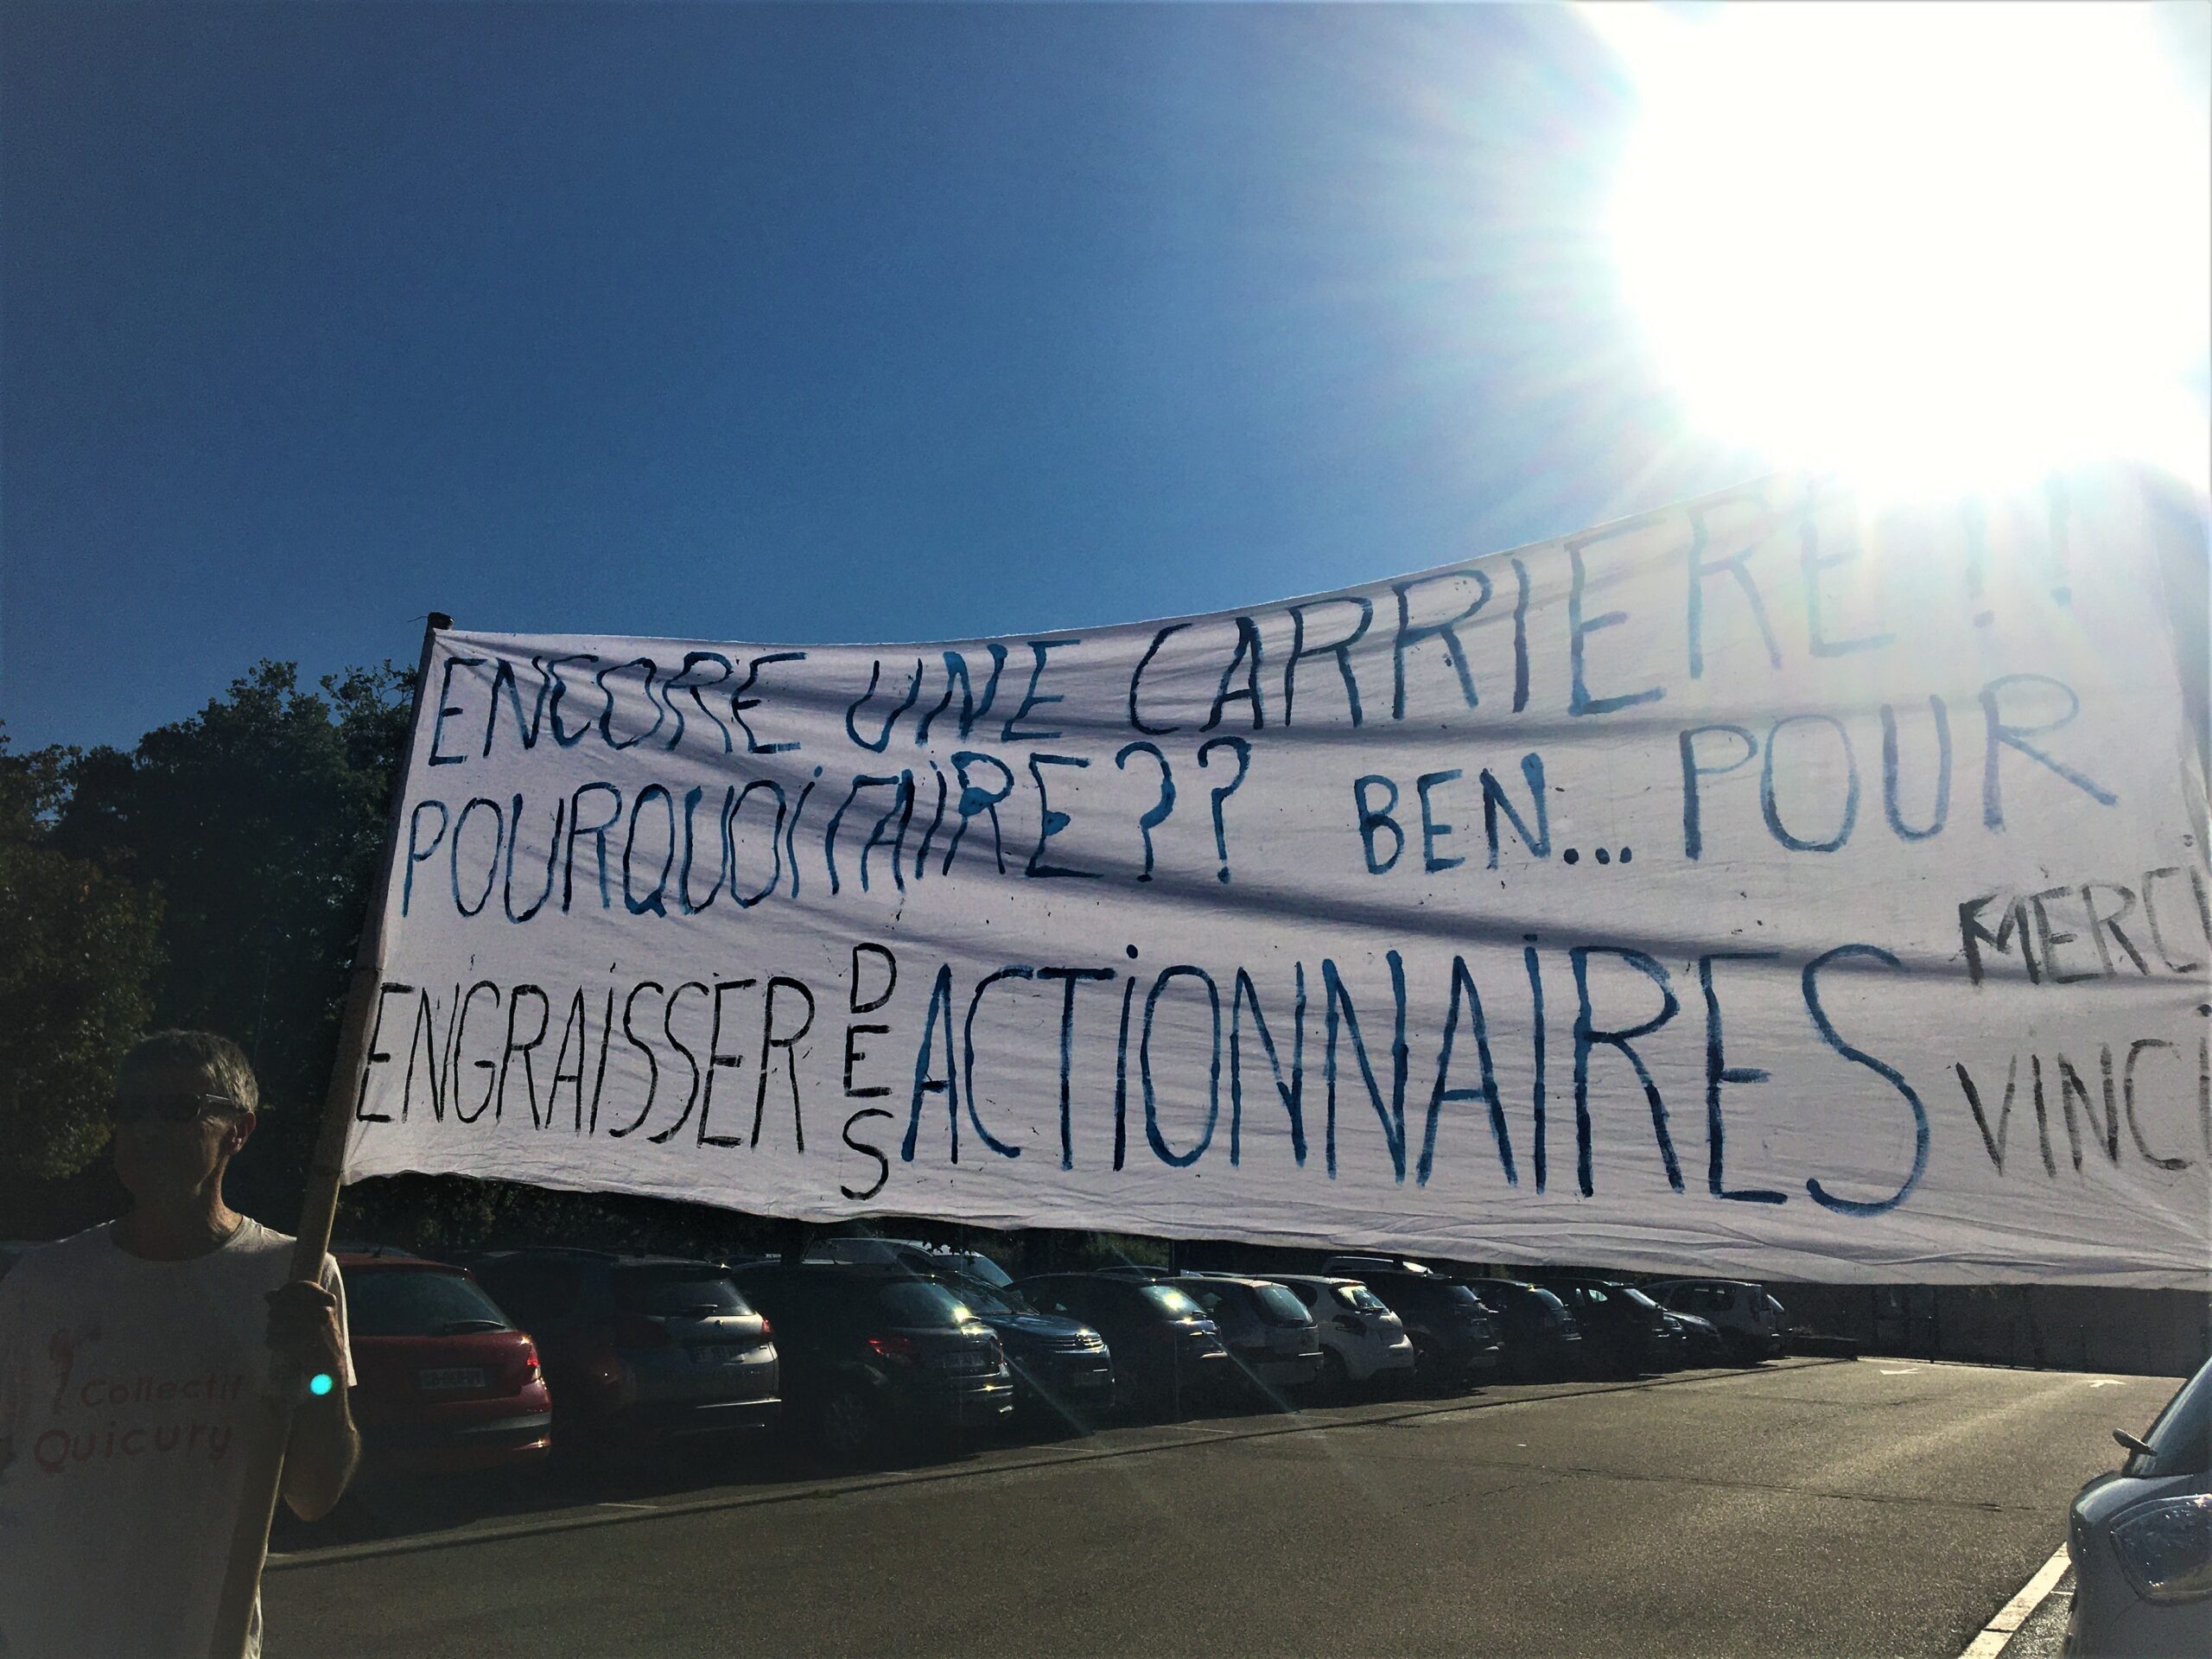 ENCORE UNE CARRIERE !!
POURQUOI FAIRE?? BEN... POUR
ENGRAISSER DES ACTIONNAIRES
MERCI
VINCI
Collectif
Quicury